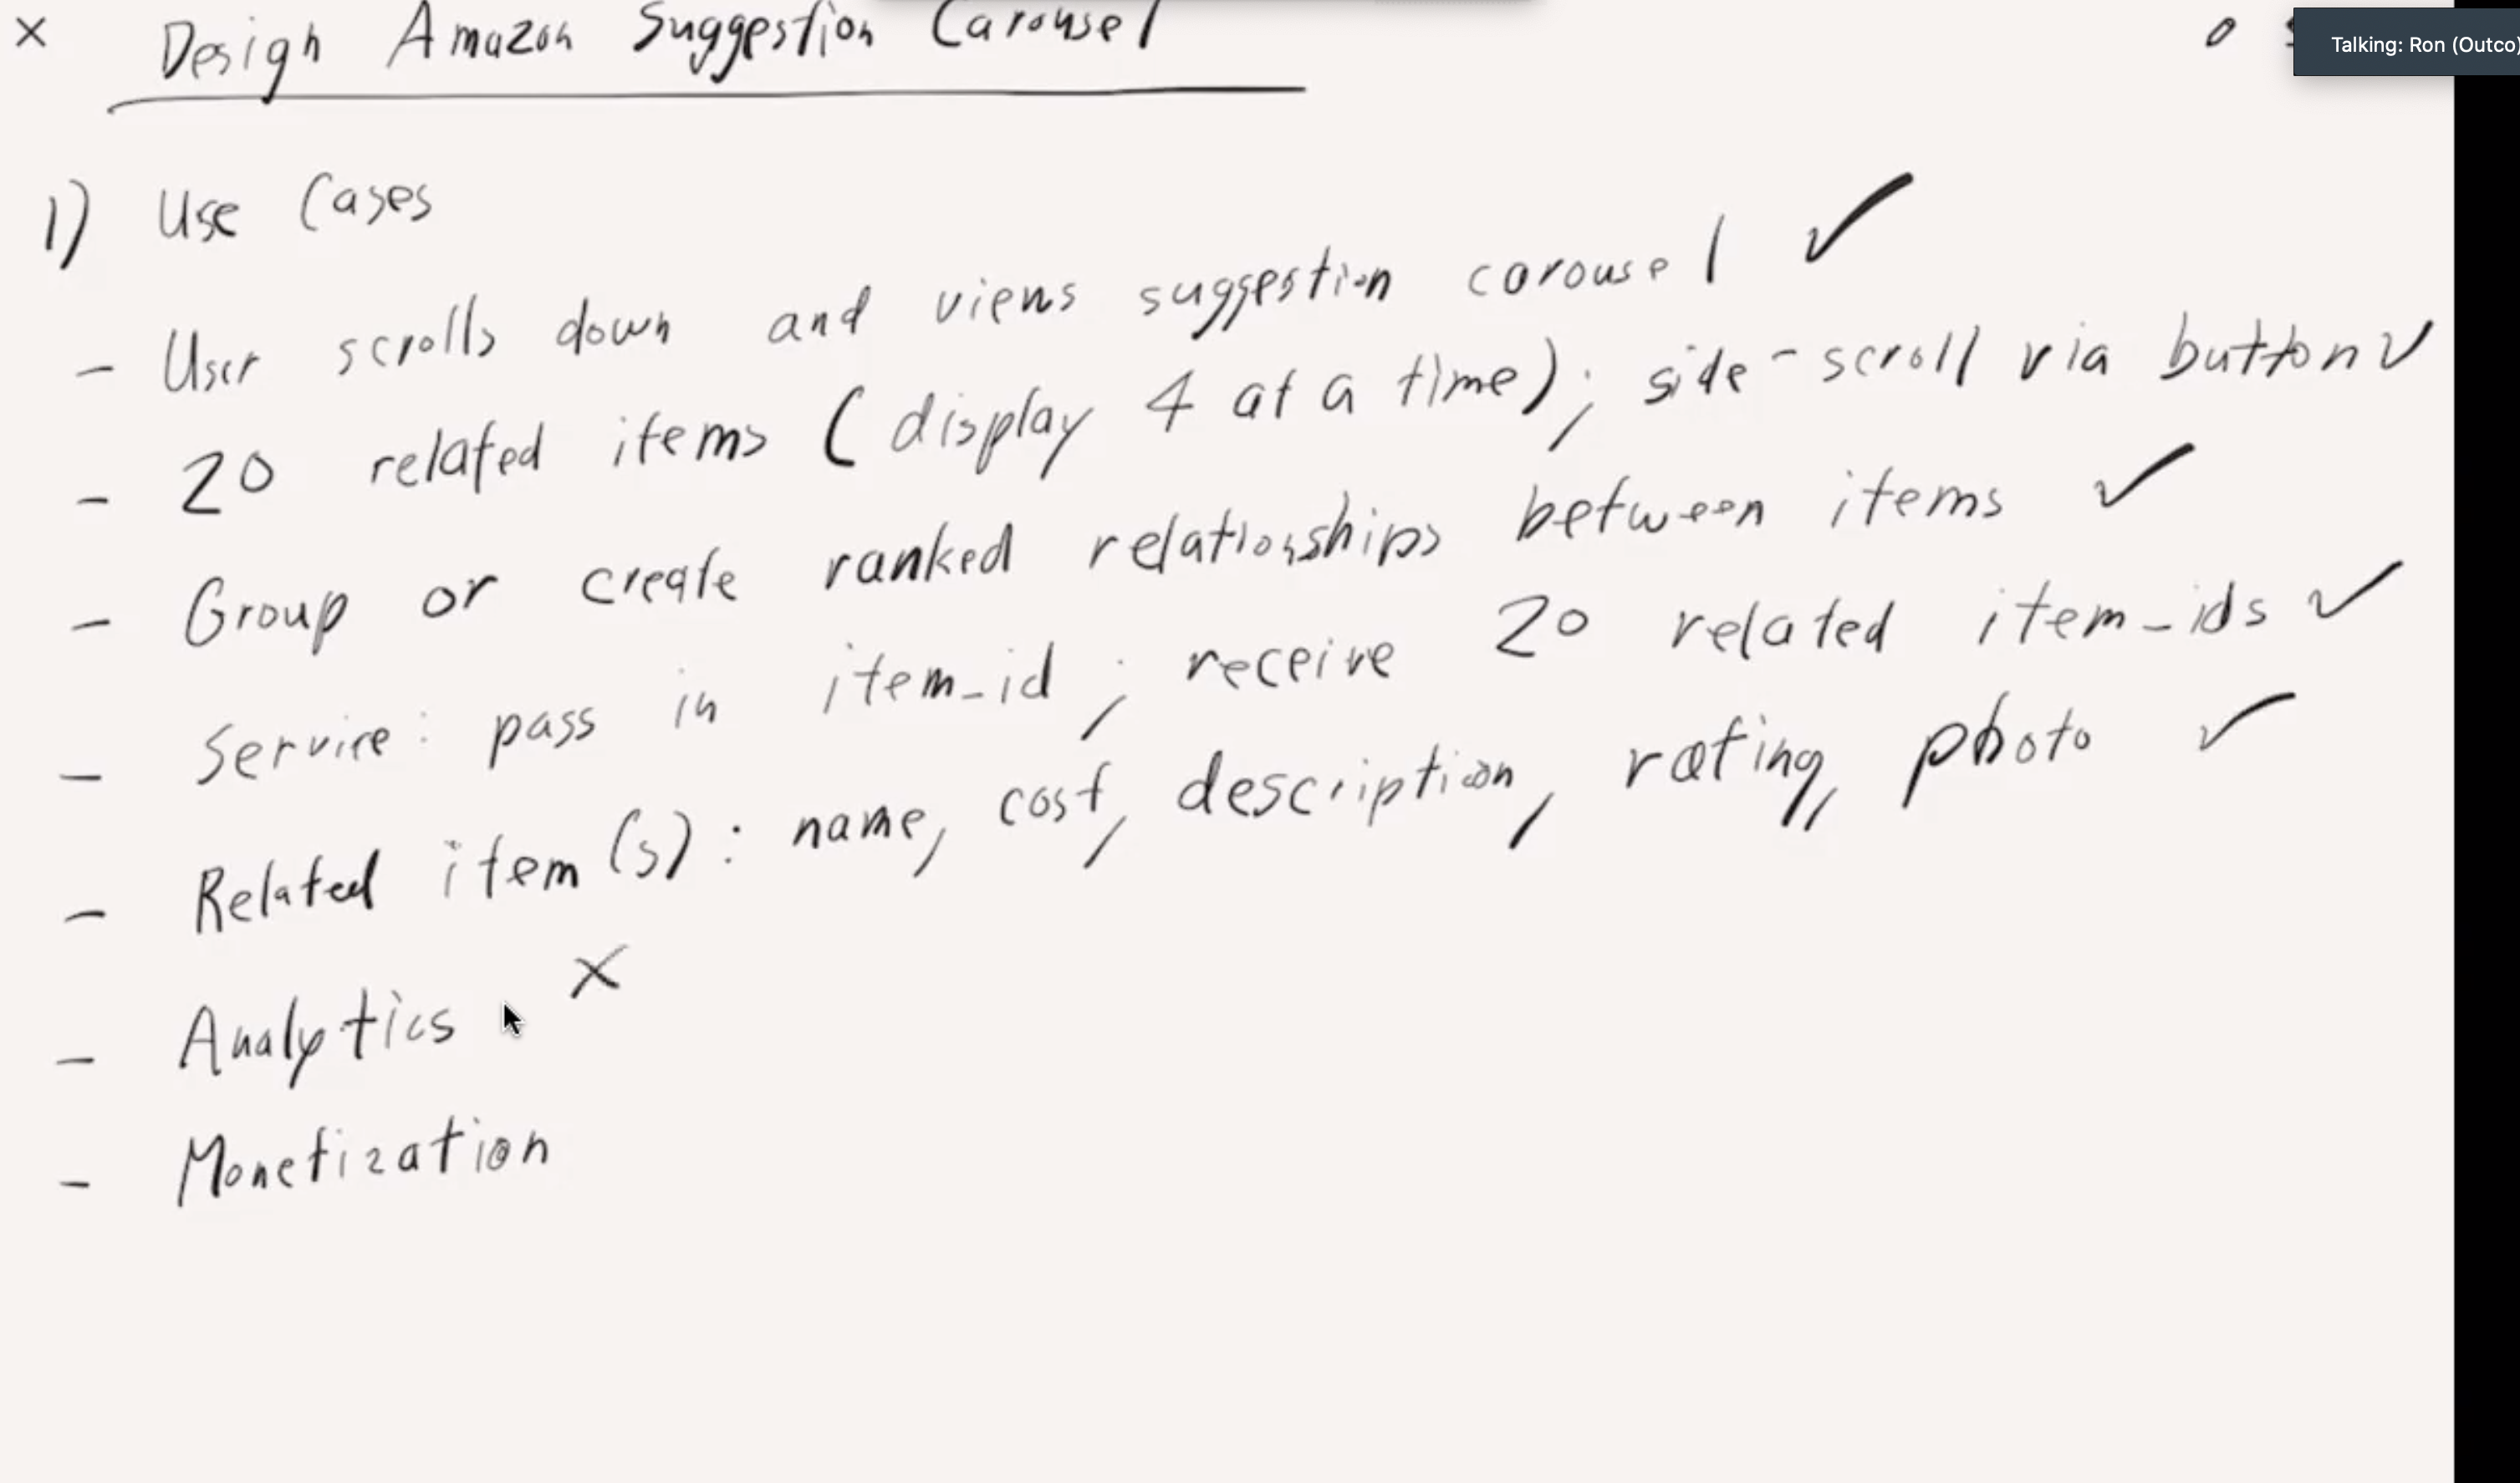 × Design Amazon Suggestion Carousel
Talking: Ron (Outco)
1) Use Cases
- User scrolls down and views suggestion carousel ✓
- 20 related items (display 4 at a time); side-scroll via button ✓
- Group or create ranked relationships between items ✓
- Service: pass in item_id; receive 20 related item_ids ✓
- Related item(s): name, cost, description, rating, photo ✓
- Analytics ×
- Monetization